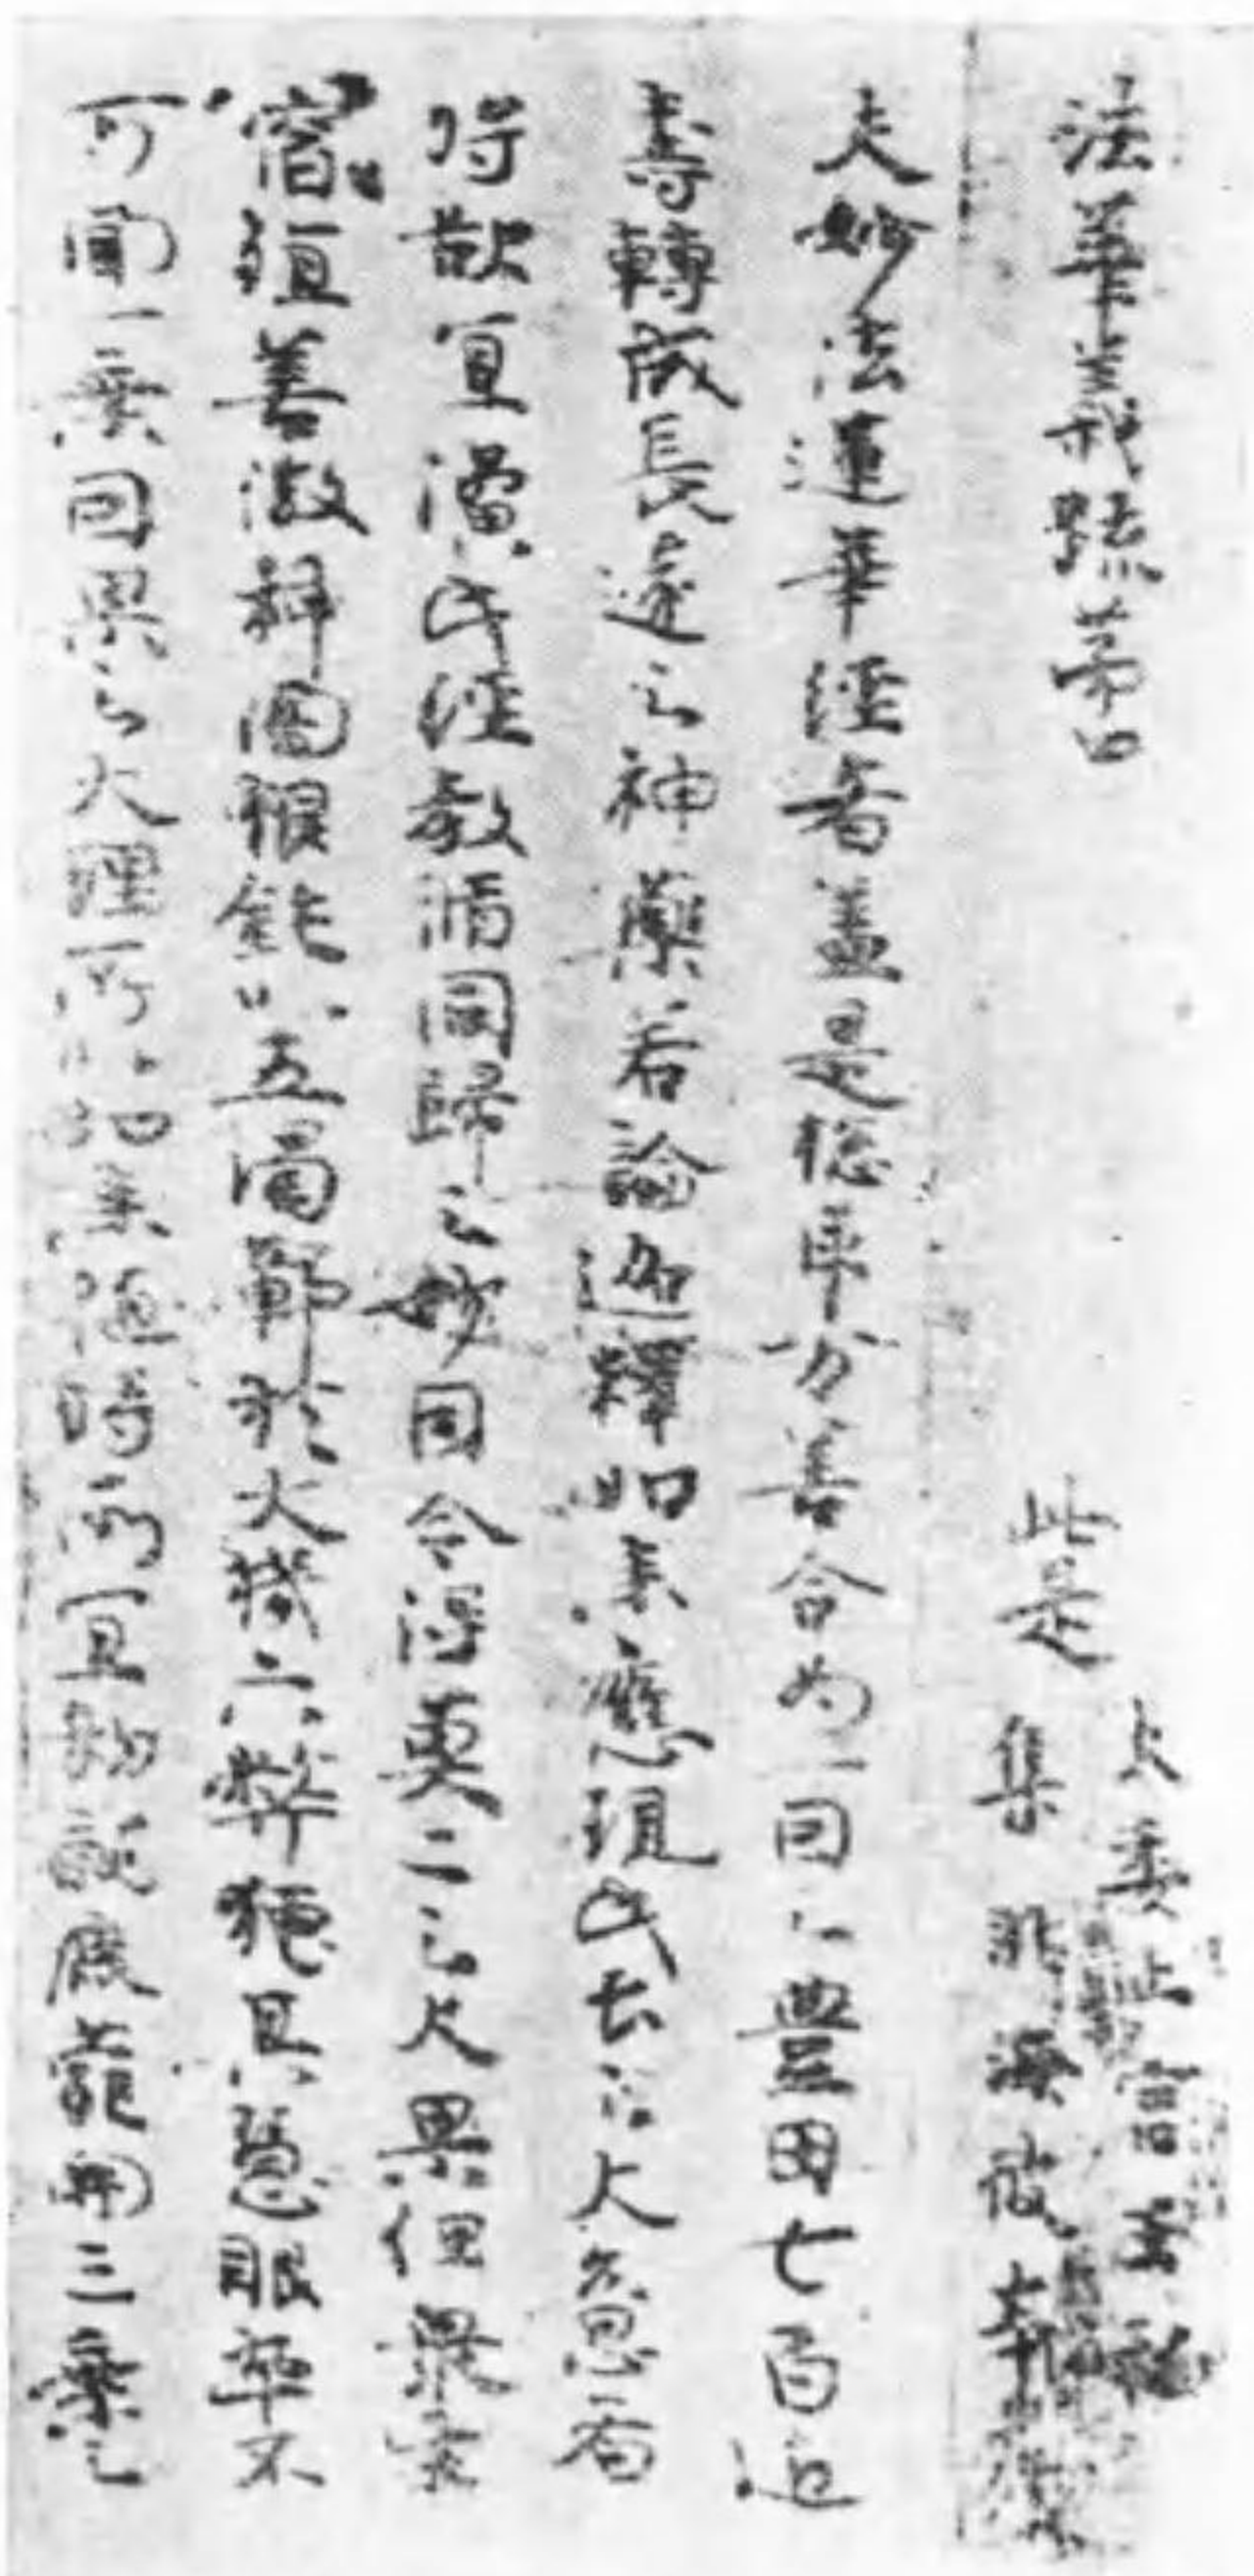 法華義疏第
此是
大委上宮王私
集非海彼本
夫妙法蓮華経者盖是惣取万善合為一因之豊田七百近
壽轉成長遠之神藥若論迦釋如来應現此土之大意者
将欲宜演此経教脩同歸之妙因令得莫二之大果但衆生
宿殖善微神闇根鈍以五濁鄣於大機六弊掩其慧眼卒不
可聞一乗因果之大理所以如来随時所宜初就鹿苑開三乗之